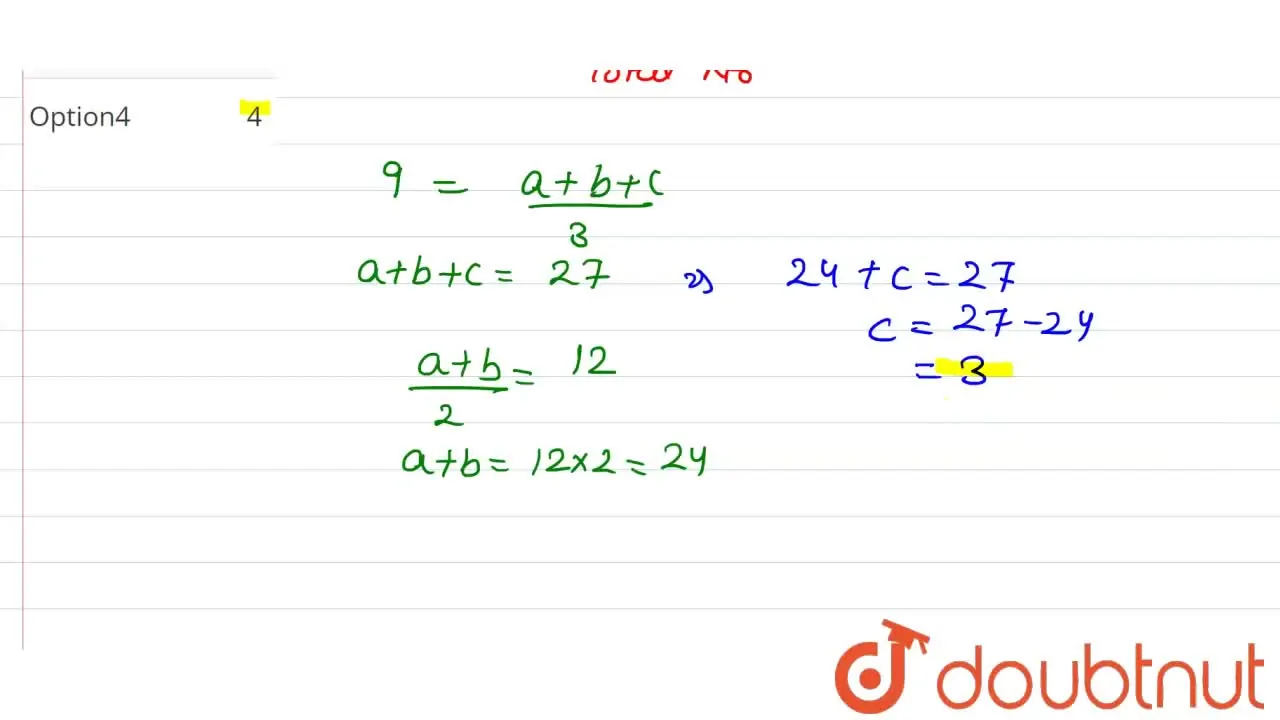 Option4 4
9 = a+b+c
3
a+b+c = 27 ⇒ 24 + c = 27
c = 27 - 24
= 3
a+b = 12
2
a+b = 12×2 = 24
doubtnut